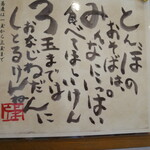 とんぼの
おそばは、
みんなにいっぱい
食べてほしいけん
3玉までは
おなじねだんに
しとるけん。